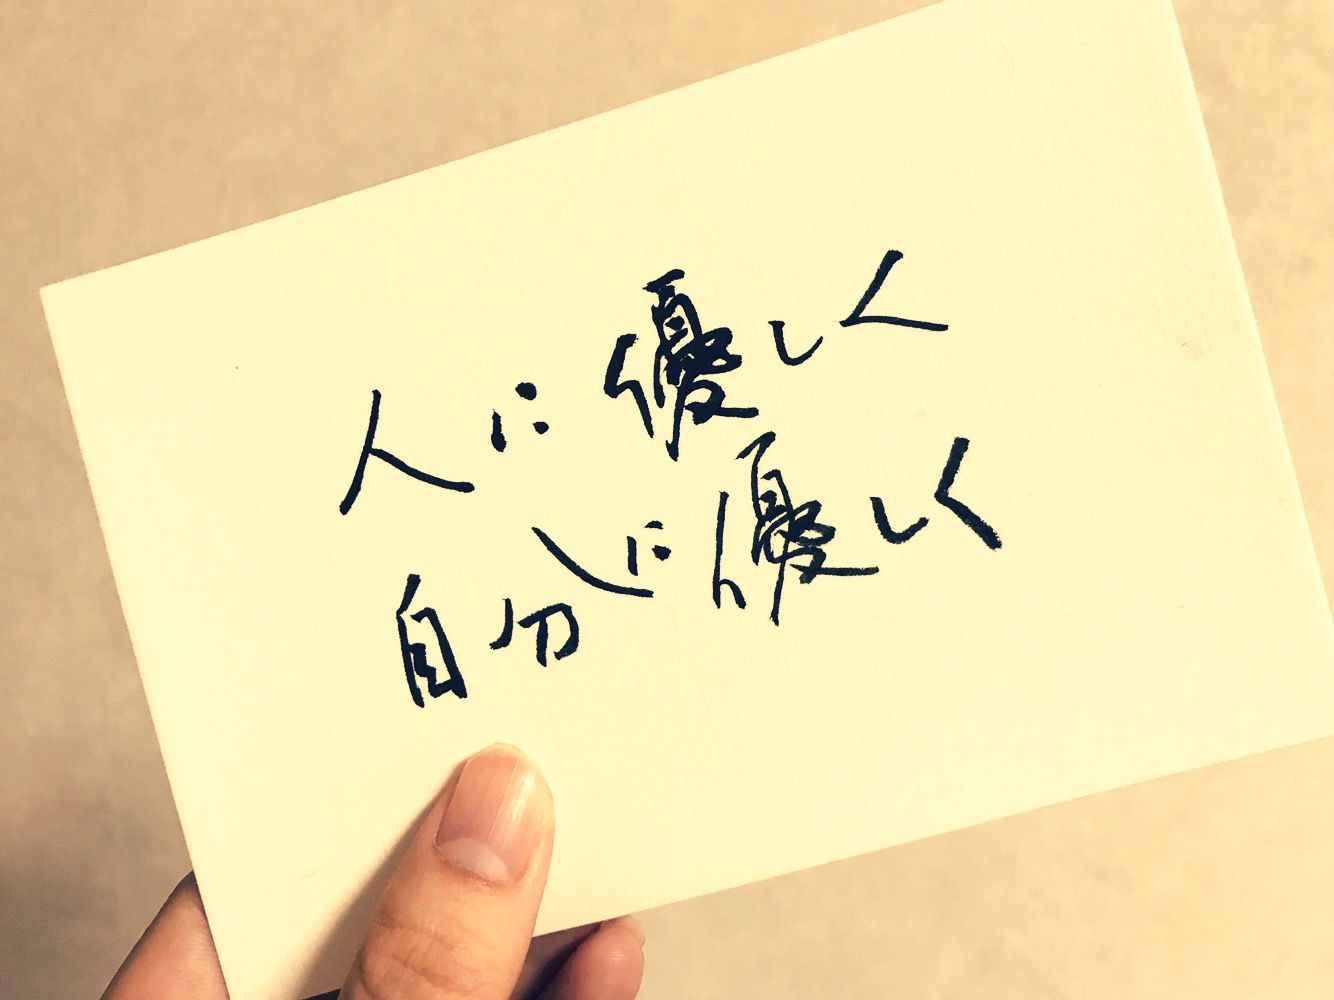 人に優しく
自分に優しく